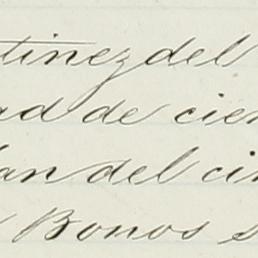 tinez del
ad de cien
an del cin
Bonos s